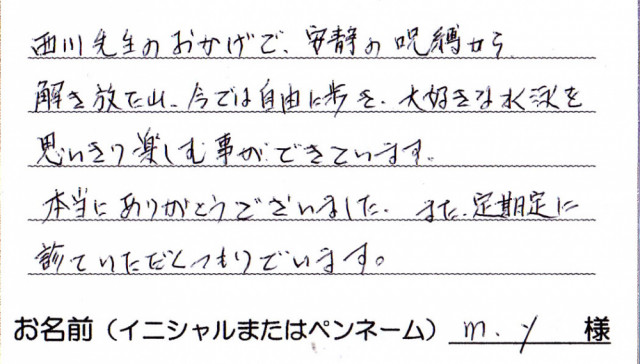 西川先生のおかげで、安静の呪縛から
解き放たれ、今では自由に歩き、大好きな水泳を
思いきり楽しむ事ができています。
本当にありがとうございました。また、定期定に
診ていただくつもりでいます。
お名前（イニシャルまたはペンネーム） m.y 様